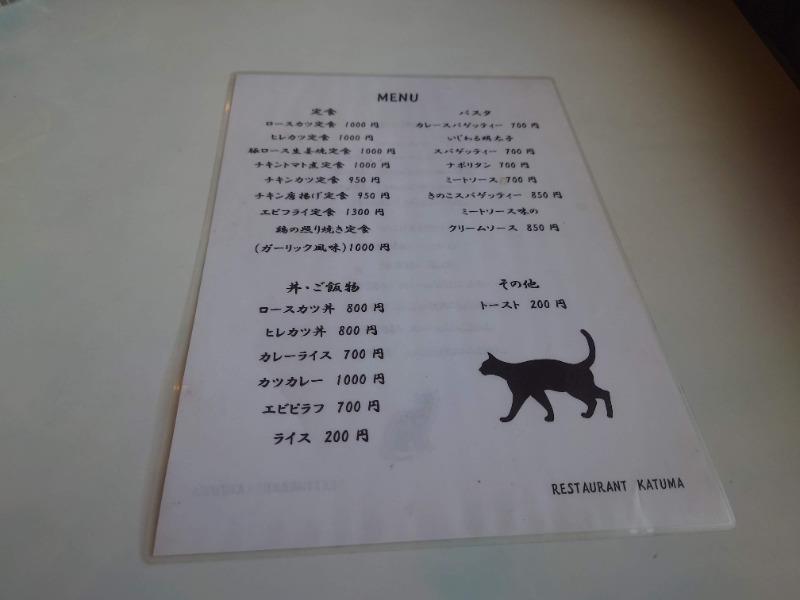 MENU
定食
ロースカツ定食 1000 円
ヒレカツ定食 1000 円
豚ロース生姜焼定食 1000 円
チキントマト煮定食 1000 円
チキンカツ定食 950 円
チキン唐揚げ定食 950 円
エビフライ定食 1300 円
鶏の照り焼き定食
(ガーリック風味)1000 円
パスタ
カレースパゲッティー 700 円
いじわる明太子
スパゲッティー 700 円
ナポリタン 700 円
ミートソース 700 円
きのこスパゲッティー 850 円
ミートソース味の
クリームソース 850 円
丼・ご飯物
ロースカツ丼 800 円
ヒレカツ丼 800 円
カレーライス 700 円
カツカレー 1000 円
エビピラフ 700 円
ライス 200 円
その他
トースト 200 円
RESTAURANT KATUMA